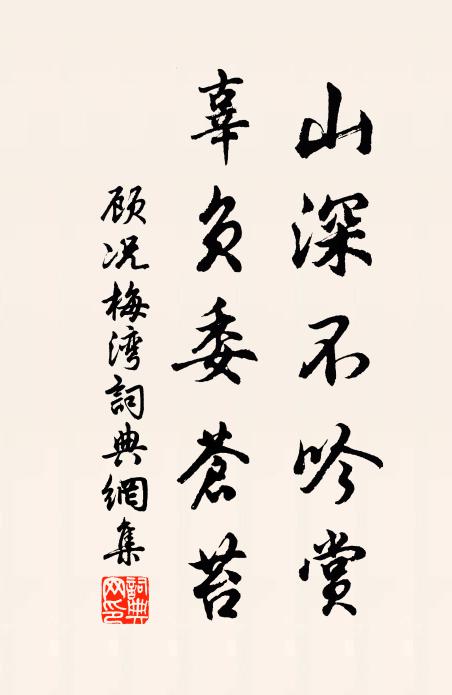 山深不吟赏
辜负委蒼苔
顾况梅湾詞典網集
詞典网印